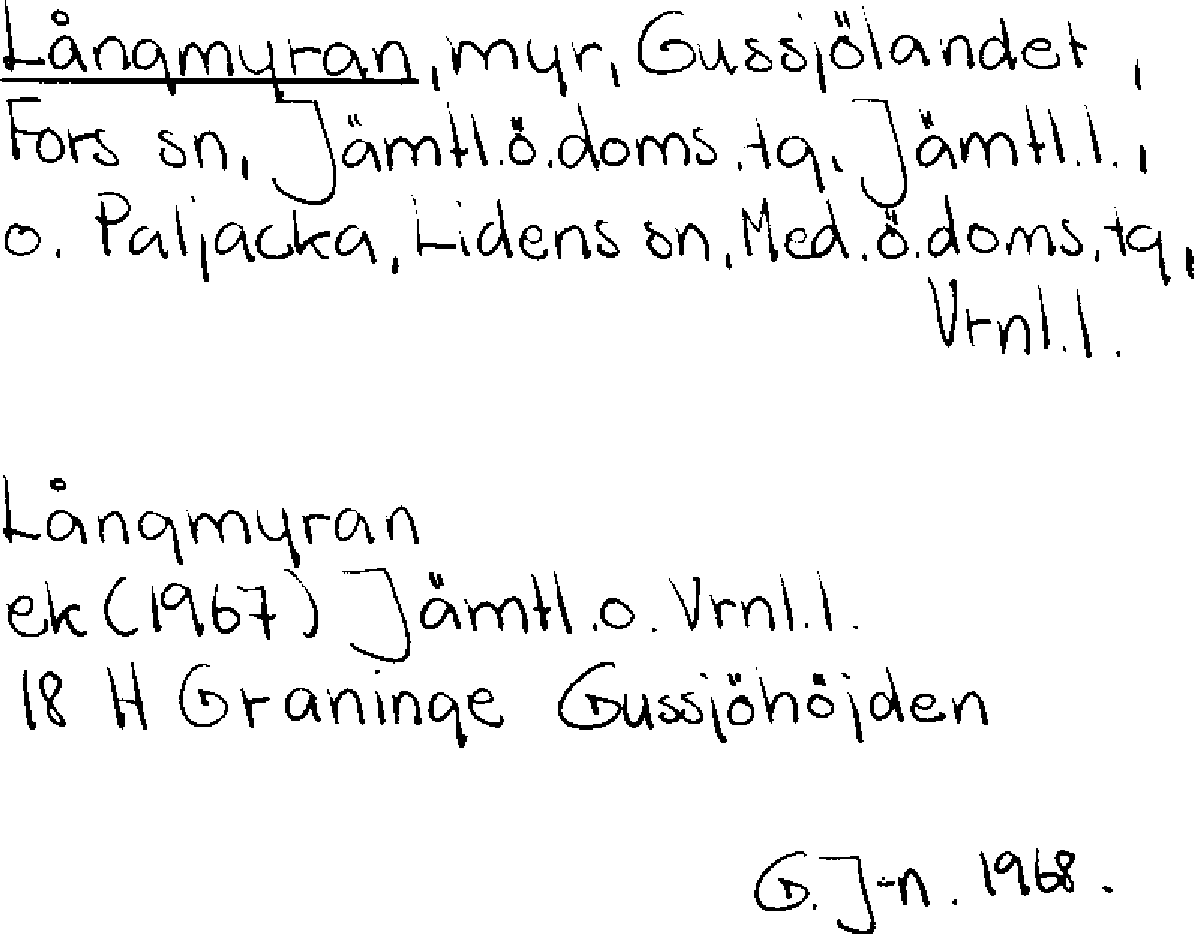 Långmyran, myr, Gussjölandet,
Fors sn, Jämtl.ö.doms.tg, Jämtl.l.,
o. Paljacka, Lidens sn, Med.ö.doms.tg,
Vrnl.l.
Långmyran
ek (1967) Jämtl.o. Vrnl.l.
18 H Graninge Gussjöhöjden
G.J-n. 1968.